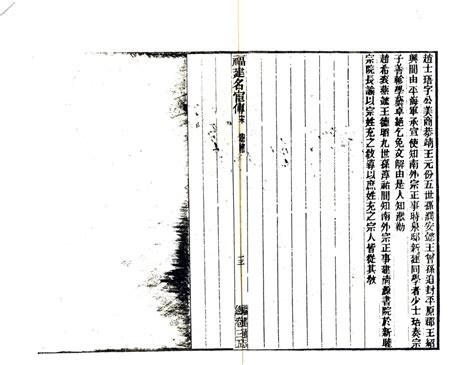 趙士珸字公美商恭靖王元份五世孫濮安懿王曾孫追封平原郡王紹
興間由平海軍承宣使知南外宗正事時泉邸新建同學者少士珸奏宗
子善軫學藝卓絕乞免文解由是人知激勸
趙希袞燕懿王德昭九世孫淳祐間知南外宗正事建清源書院於新驢
宗院長諭以宗姓充之教導以庶姓充之宗人皆從其教
福建名宦傳 宋